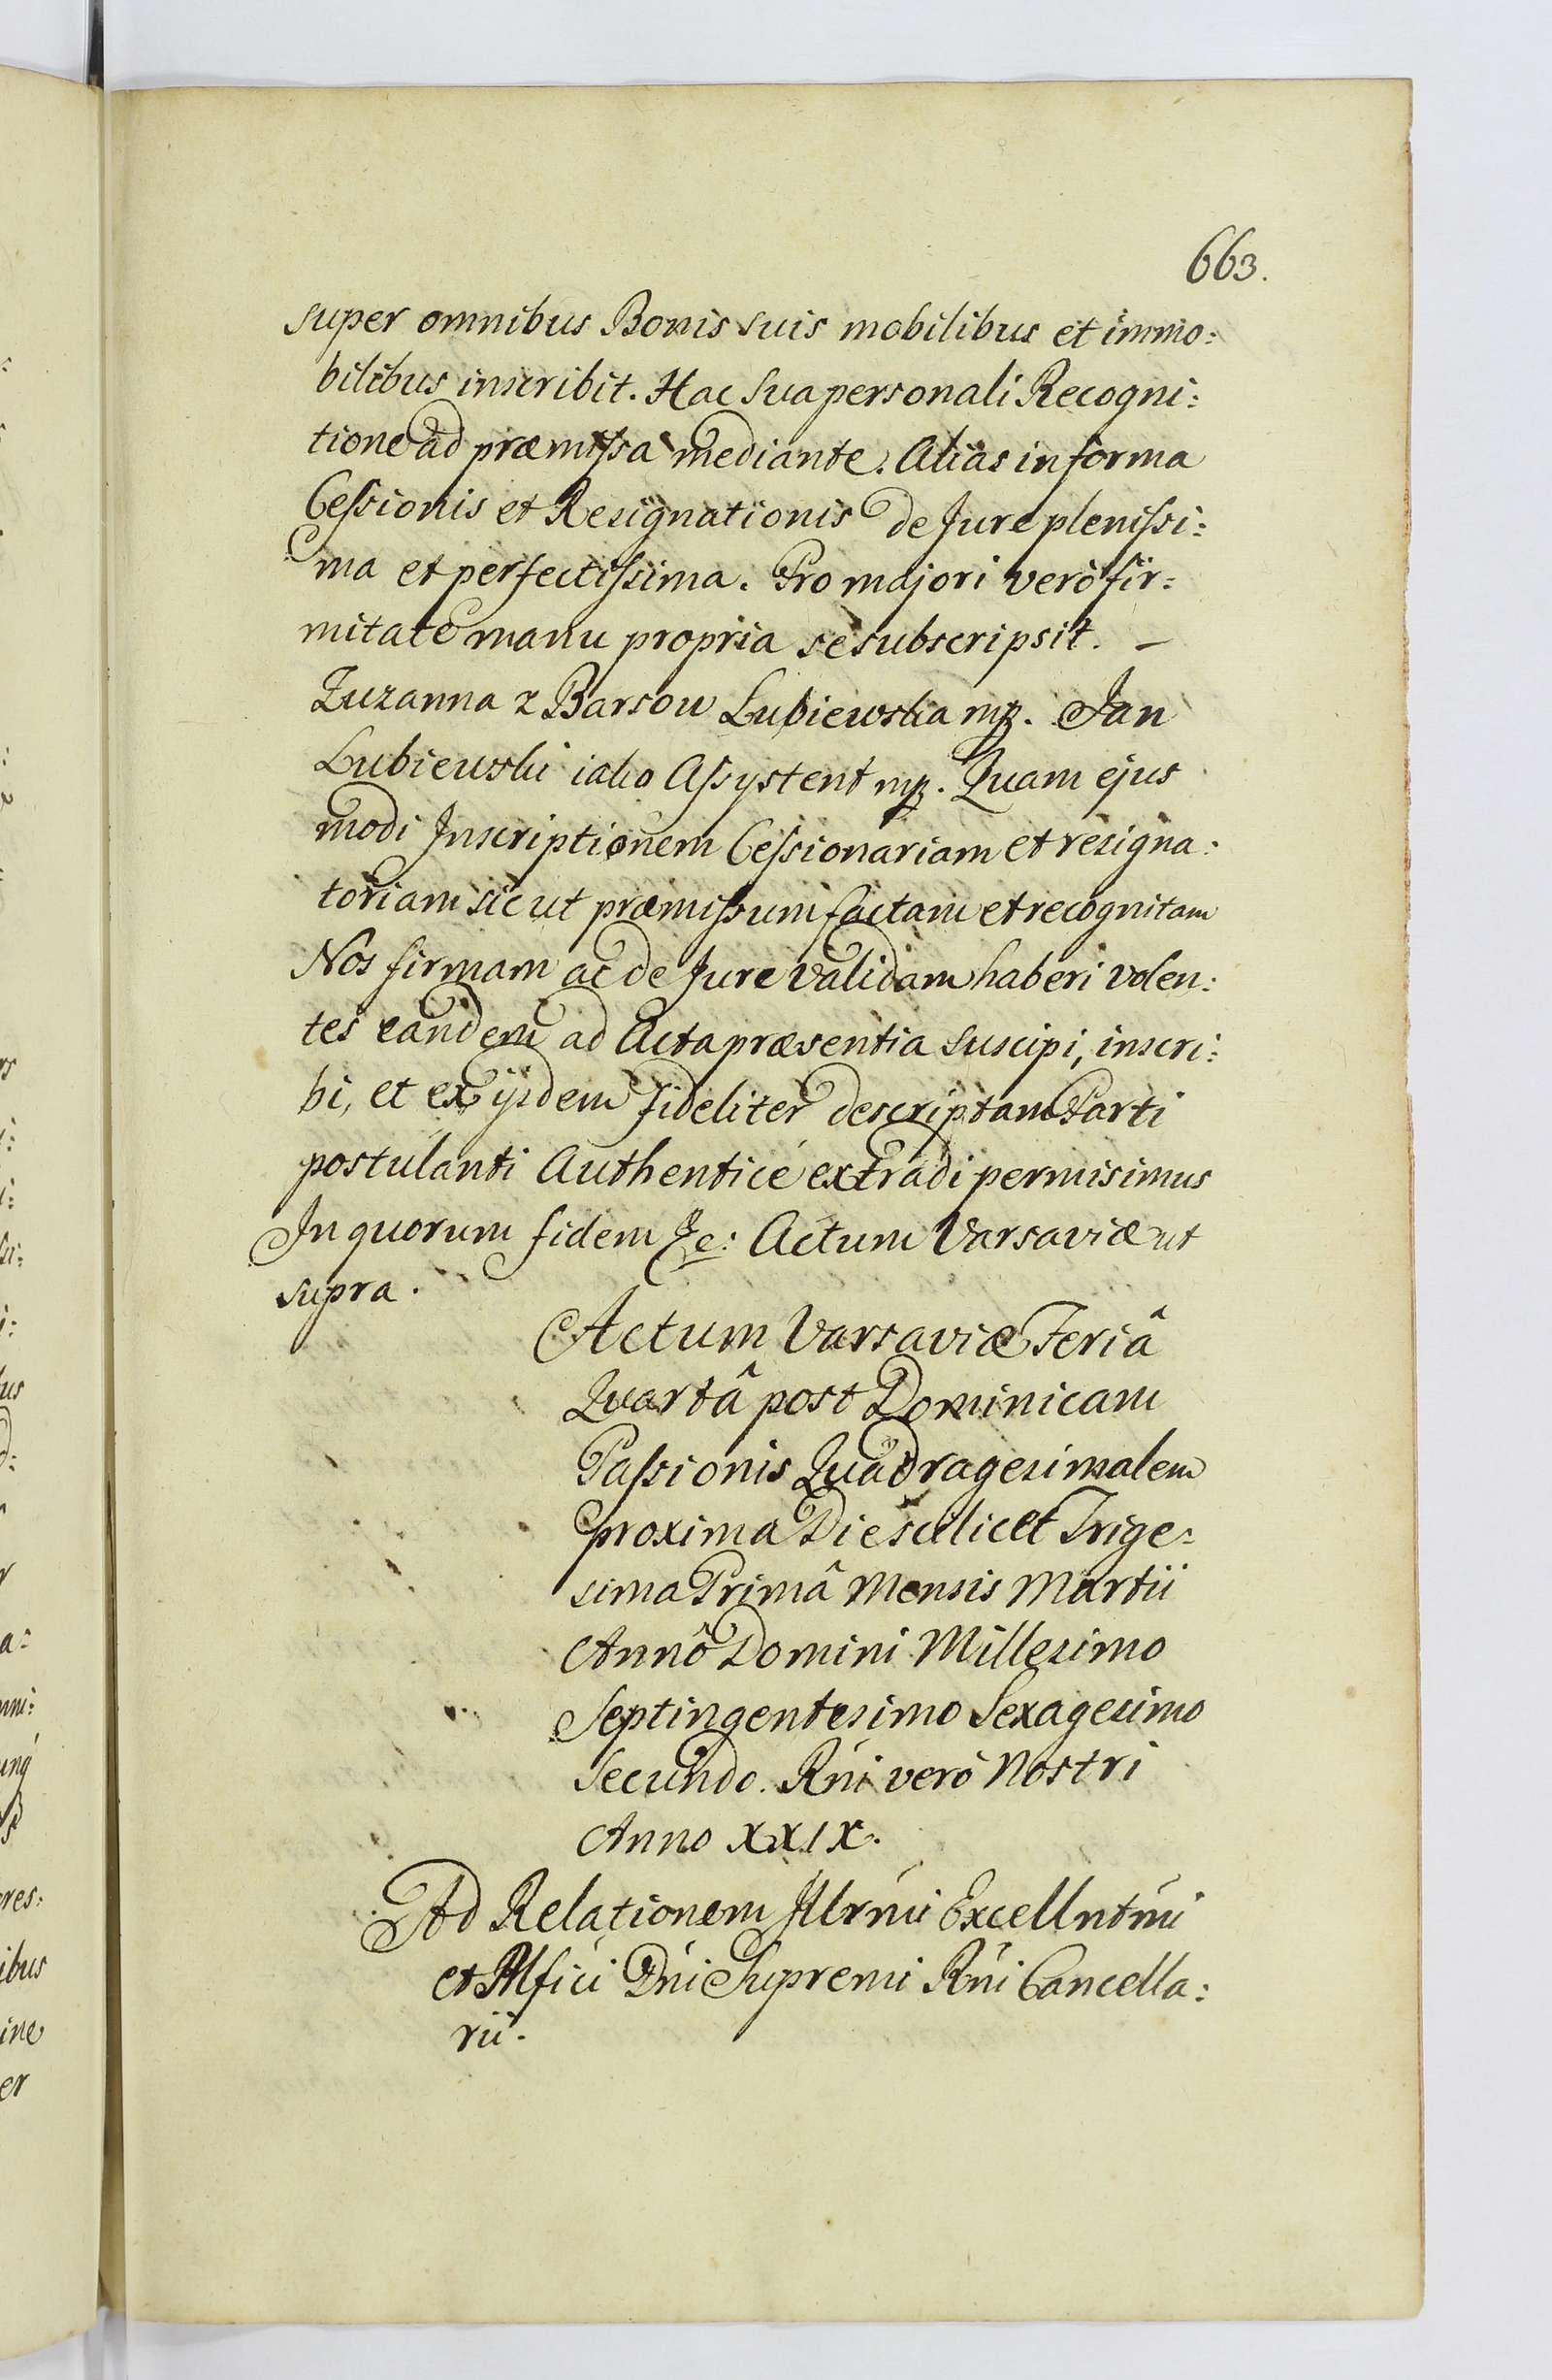 663.
super omnibus Bonis suis mobilibus et immo:
bilibus inscribit. Hac sua personali Recogni:
tione ad præmissa mediante. Alias in forma
Cessionis et Resignationis de Jure plenissi:
ma et perfectissima. Pro majori verò fir:
mitate manu propria se subscripsit. –
Zuzanna z Barsow Lubiewska mp. Jan
Lubiewski iako Assystent mp. Quam ejus
modi Inscriptionem Cessionariam et resigna:
toriam sicut præmissum factam et recognitam
Nos firmam ac de Jure validam haberi volen:
tes eandem ad Acta præsentia suscipi, inscri:
bi, et ex ijsdem fideliter descriptam Parti
postulanti Authenticé extradi permisimus
In quorum fidem &c: Actum Varsaviæ ut
supra.
Actum Varsaviæ Feriâ
Quartâ post Dominicam
Passionis Quadragesimalem
proxima Die scilicet Trige:
sima Primâ Mensis Martii
Annô Domini Millesimo
Septingentesimo Sexagesimo
Secundo. Rni verò Nostri
Anno XXIX.
Ad Relationem Illrmi Excellntmi
et Mfici Dni Supremi Rni Cancella:
rii.